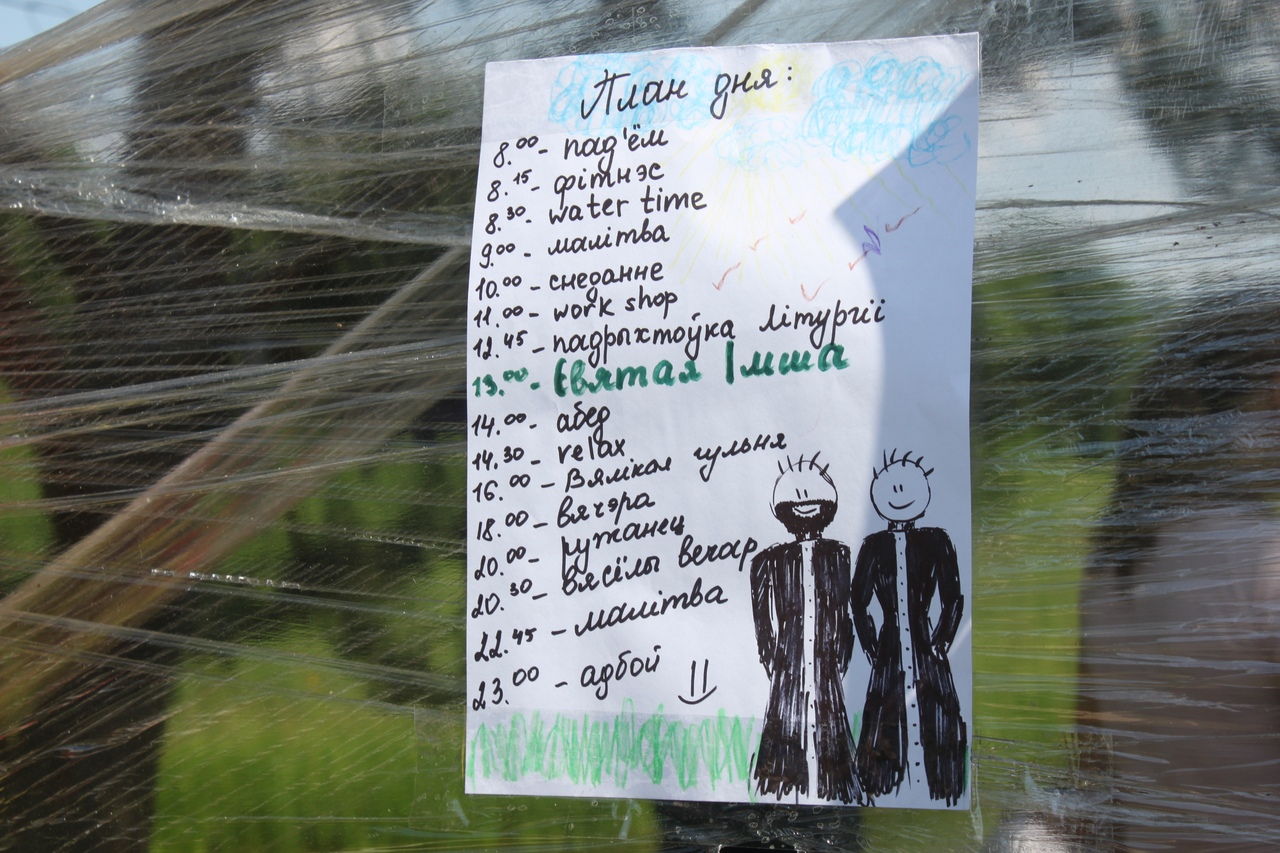 План дня:
8.00 - пад'ём
8.15 - фітнэс
8.30 - water time
9.00 - малітва
10.00 - снеданне
11.00 - work shop
12.45 - падрыхтоўка літургіі
13.00 - Святая Імша
14.00 - абед
14.30 - relax
16.00 - Вялікая гульня
18.00 - вячэра
20.00 - ружанец
20.30 - вясёлы вечар
22.45 - малітва
23.00 - адбой